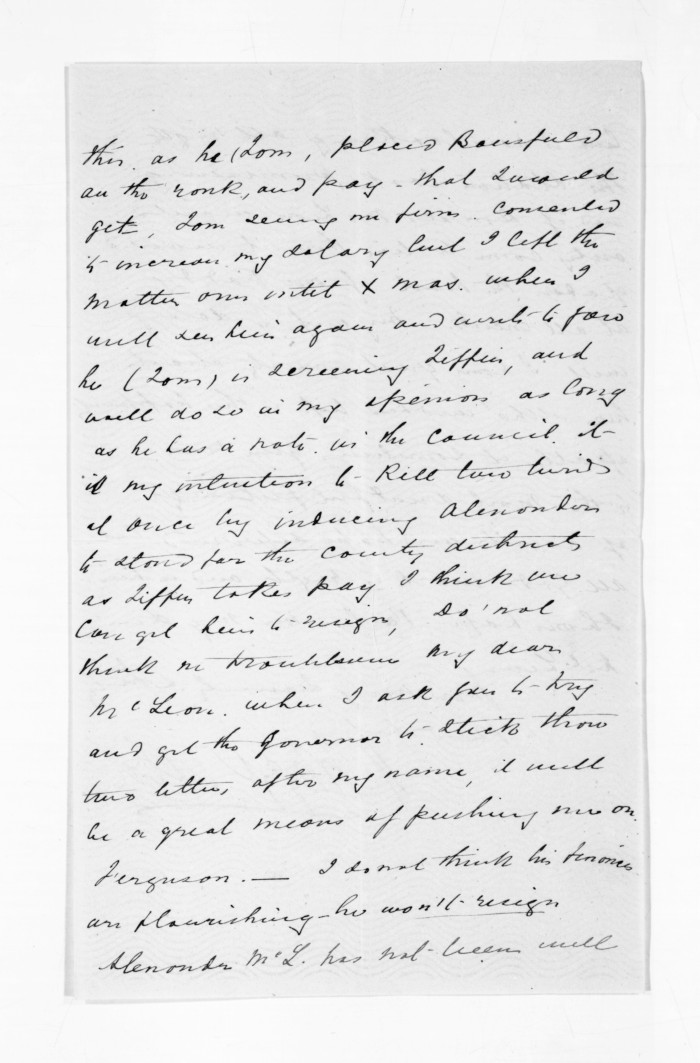 this. as he (Tom, placed Bousfield
on the rank, and pay - that I would
get, Tom seeing me firm. consented
to increase my salary but I left the
matter over until Xmas. when I
will see him again and write to you
he (Tom) is screening Tiffen, and
will do so in my opinion as long
as he has a vote. in the council. it
is my intention to Kill two birds
at once by inducing Alexander
to stand for the county districts
as Tiffen takes pay I think we
can get him to resign, Do' not
think me troublesome my dear
McLean. when I ask you to try
and get the Governor to stick those
two letters after my name, it will
be a great means of pushing me on.
Ferguson. — I do not think his finances
are flourishing - he won't resign
Alexander McL. has not been well